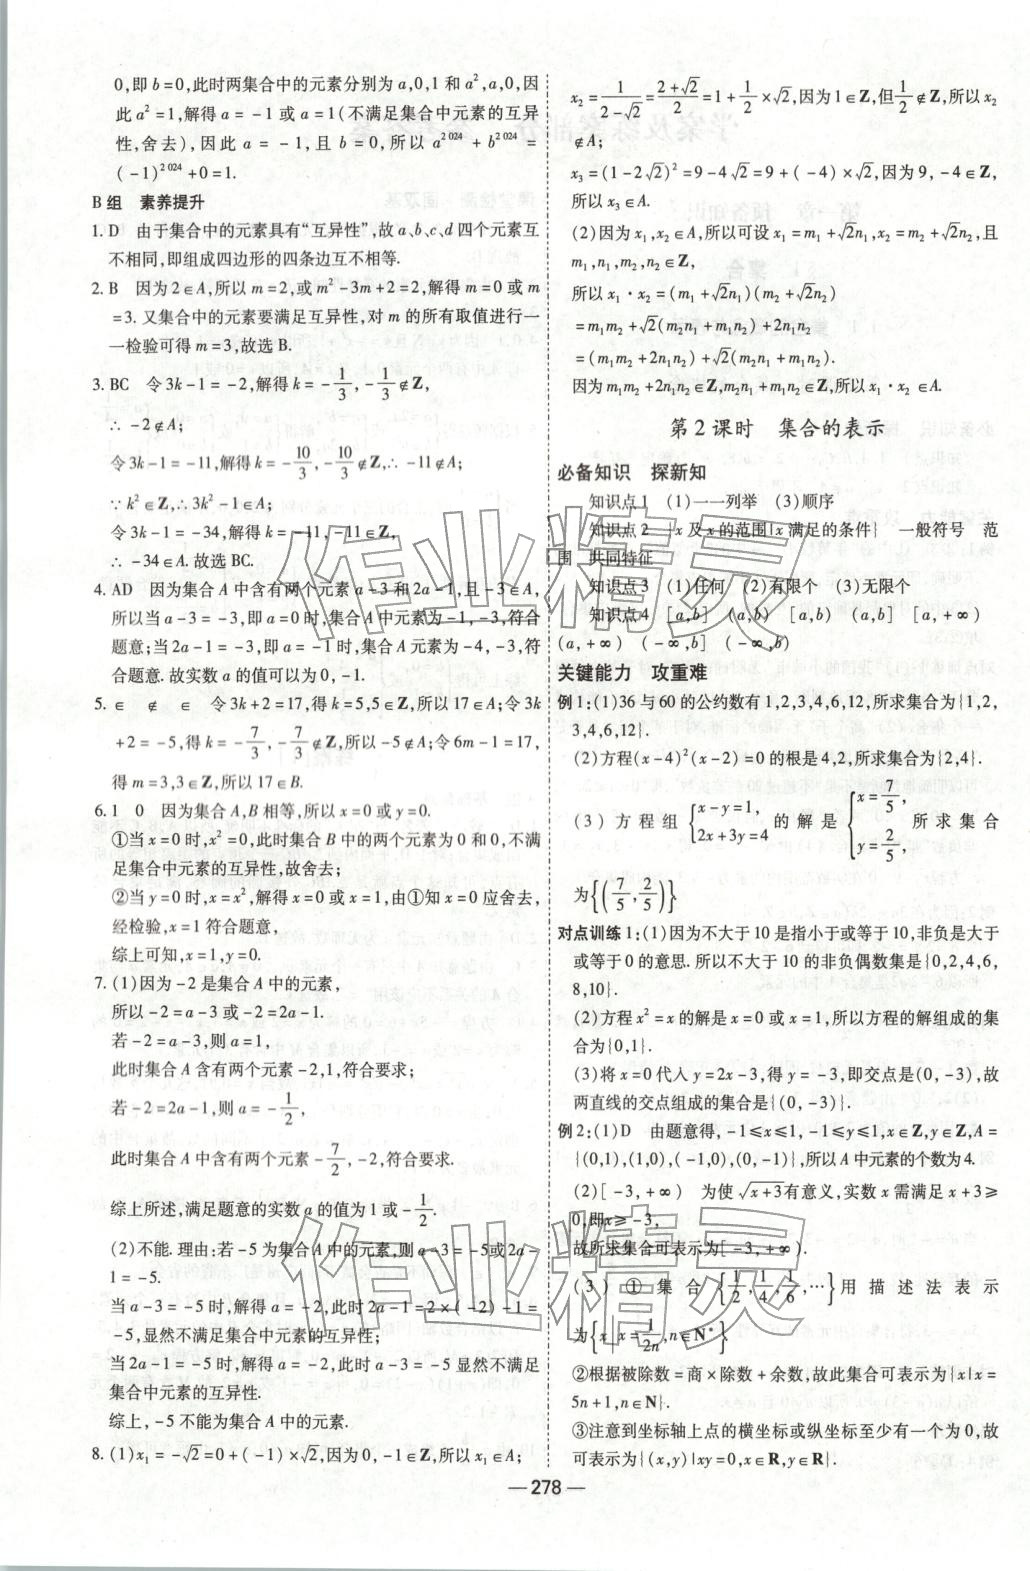 0,即 b=0,此时两集合中的元素分别为 a,0,1 和 a²,a,0,因
此 a²=1,解得 a=-1 或 a=1(不满足集合中元素的互异
性,舍去),因此 a=-1,且 b=0,所以 a²⁰²⁴+b²⁰²⁴=
(-1)²⁰²⁴+0=1.
B组 素养提升
1. D 由于集合中的元素具有“互异性”,故 a、b、c、d 四个元素互
不相同,即组成四边形的四条边互不相等.
2. B 因为 2∈A,所以 m=2,或 m²-3m+2=2,解得 m=0 或 m
=3. 又集合中的元素要满足互异性,对 m 的所有取值进行一
一检验可得 m=3,故选 B.
3. BC 令 3k-1=-2,解得 k=-1/3,-1/3∉Z,
∴ -2∉A;
令 3k-1=-11,解得 k=-10/3,-10/3∉Z,∴-11∉A;
∵k²∈Z,∴3k²-1∈A;
令 3k-1=-34,解得 k=-11,-11∈Z,
∴ -34∈A. 故选 BC.
4. AD 因为集合 A 中含有两个元素 a-3 和 2a-1,且 -3∈A,
所以当 a-3=-3,即 a=0 时,集合 A 中元素为 -1,-3,符合
题意;当 2a-1=-3,即 a=-1 时,集合 A 元素为 -4,-3,符
合题意. 故实数 a 的值可以为 0,-1.
5. ∈ ∉ ∈ 令 3k+2=17,得 k=5,5∈Z,所以 17∈A;令 3k
+2=-5,得 k=-7/3,-7/3∉Z,所以 -5∉A;令 6m-1=17,
得 m=3,3∈Z,所以 17∈B.
6. 1 0 因为集合 A,B 相等,所以 x=0 或 y=0.
①当 x=0 时,x²=0,此时集合 B 中的两个元素为 0 和 0,不满
足集合中元素的互异性,故舍去;
②当 y=0 时,x=x²,解得 x=0 或 x=1,由①知 x=0 应舍去,
经检验,x=1 符合题意,
综上可知,x=1,y=0.
7. (1)因为 -2 是集合 A 中的元素,
所以 -2=a-3 或 -2=2a-1.
若 -2=a-3,则 a=1,
此时集合 A 含有两个元素 -2,1,符合要求;
若 -2=2a-1,则 a=-1/2,
此时集合 A 中含有两个元素 -7/2,-2,符合要求.
综上所述,满足题意的实数 a 的值为 1 或 -1/2.
(2)不能. 理由:若 -5 为集合 A 中的元素,则 a-3=-5 或 2a-
1=-5.
当 a-3=-5 时,解得 a=-2,此时 2a-1=2×(-2)-1=
-5,显然不满足集合中元素的互异性;
当 2a-1=-5 时,解得 a=-2,此时 a-3=-5 显然不满足
集合中元素的互异性.
综上,-5 不能为集合 A 中的元素.
8. (1)x₁=-√2=0+(-1)×√2,因为 0,-1∈Z,所以 x₁∈A;
x₂=1/(2-√2)=(2+√2)/2=1+1/2×√2,因为 1∈Z,但 1/2∉Z,所以 x₂
∉A;
x₃=(1-2√2)²=9-4√2=9+(-4)×√2,因为 9,-4∈Z,
所以 x₃∈A.
(2)因为 x₁,x₂∈A,所以可设 x₁=m₁+√2n₁,x₂=m₂+√2n₂,且
m₁,n₁,m₂,n₂∈Z,
所以 x₁·x₂=(m₁+√2n₁)(m₂+√2n₂)
=m₁m₂+√2(m₂n₁+m₁n₂)+2n₁n₂
=(m₁m₂+2n₁n₂)+(m₂n₁+m₁n₂)√2.
因为 m₁m₂+2n₁n₂∈Z,m₂n₁+m₁n₂∈Z,所以 x₁·x₂∈A.
第 2 课时 集合的表示
必备知识 探新知
知识点 1 (1)一一列举 (3)顺序
知识点 2 {x 及 x 的范围|x 满足的条件} 一般符号 范
围 共同特征
知识点 3 (1)任何 (2)有限个 (3)无限个
知识点 4 [a,b] (a,b) [a,b) (a,b] [a,+∞)
(a,+∞) (-∞,b] (-∞,b)
关键能力 攻重难
例 1:(1)36 与 60 的公约数有 1,2,3,4,6,12,所求集合为{1,2,
3,4,6,12}.
(2)方程(x-4)²(x-2)=0 的根是 4,2,所求集合为{2,4}.
(3)方程组{x-y=1, 2x+3y=4 的解是{x=7/5, y=2/5, 所求集合
为{(7/5,2/5)}.
对点训练 1:(1)因为不大于 10 是指小于或等于 10,非负是大于
或等于 0 的意思. 所以不大于 10 的非负偶数集是{0,2,4,6,
8,10}.
(2)方程 x²=x 的解是 x=0 或 x=1,所以方程的解组成的集
合为{0,1}.
(3)将 x=0 代入 y=2x-3,得 y=-3,即交点是(0,-3),故
两直线的交点组成的集合是{(0,-3)}.
例 2:(1)D 由题意得,-1≤x≤1,-1≤y≤1,x∈Z,y∈Z,A=
{(0,1),(1,0),(-1,0),(0,-1)},所以 A 中元素的个数为 4.
(2)[-3,+∞) 为使√(x+3)有意义,实数 x 需满足 x+3≥
0,即 x≥-3,
故所求集合可表示为[-3,+∞).
(3)①集合{1/2,1/4,1/6,…}用描述法表示
为{x|x=1/(2n),n∈N*}.
②根据被除数=商×除数+余数,故此集合可表示为{x|x=
5n+1,n∈N}.
③注意到坐标轴上点的横坐标或纵坐标至少有一个为 0,故
可表示为{(x,y)|xy=0,x∈R,y∈R}.
— 278 —
作业精灵
作业精灵